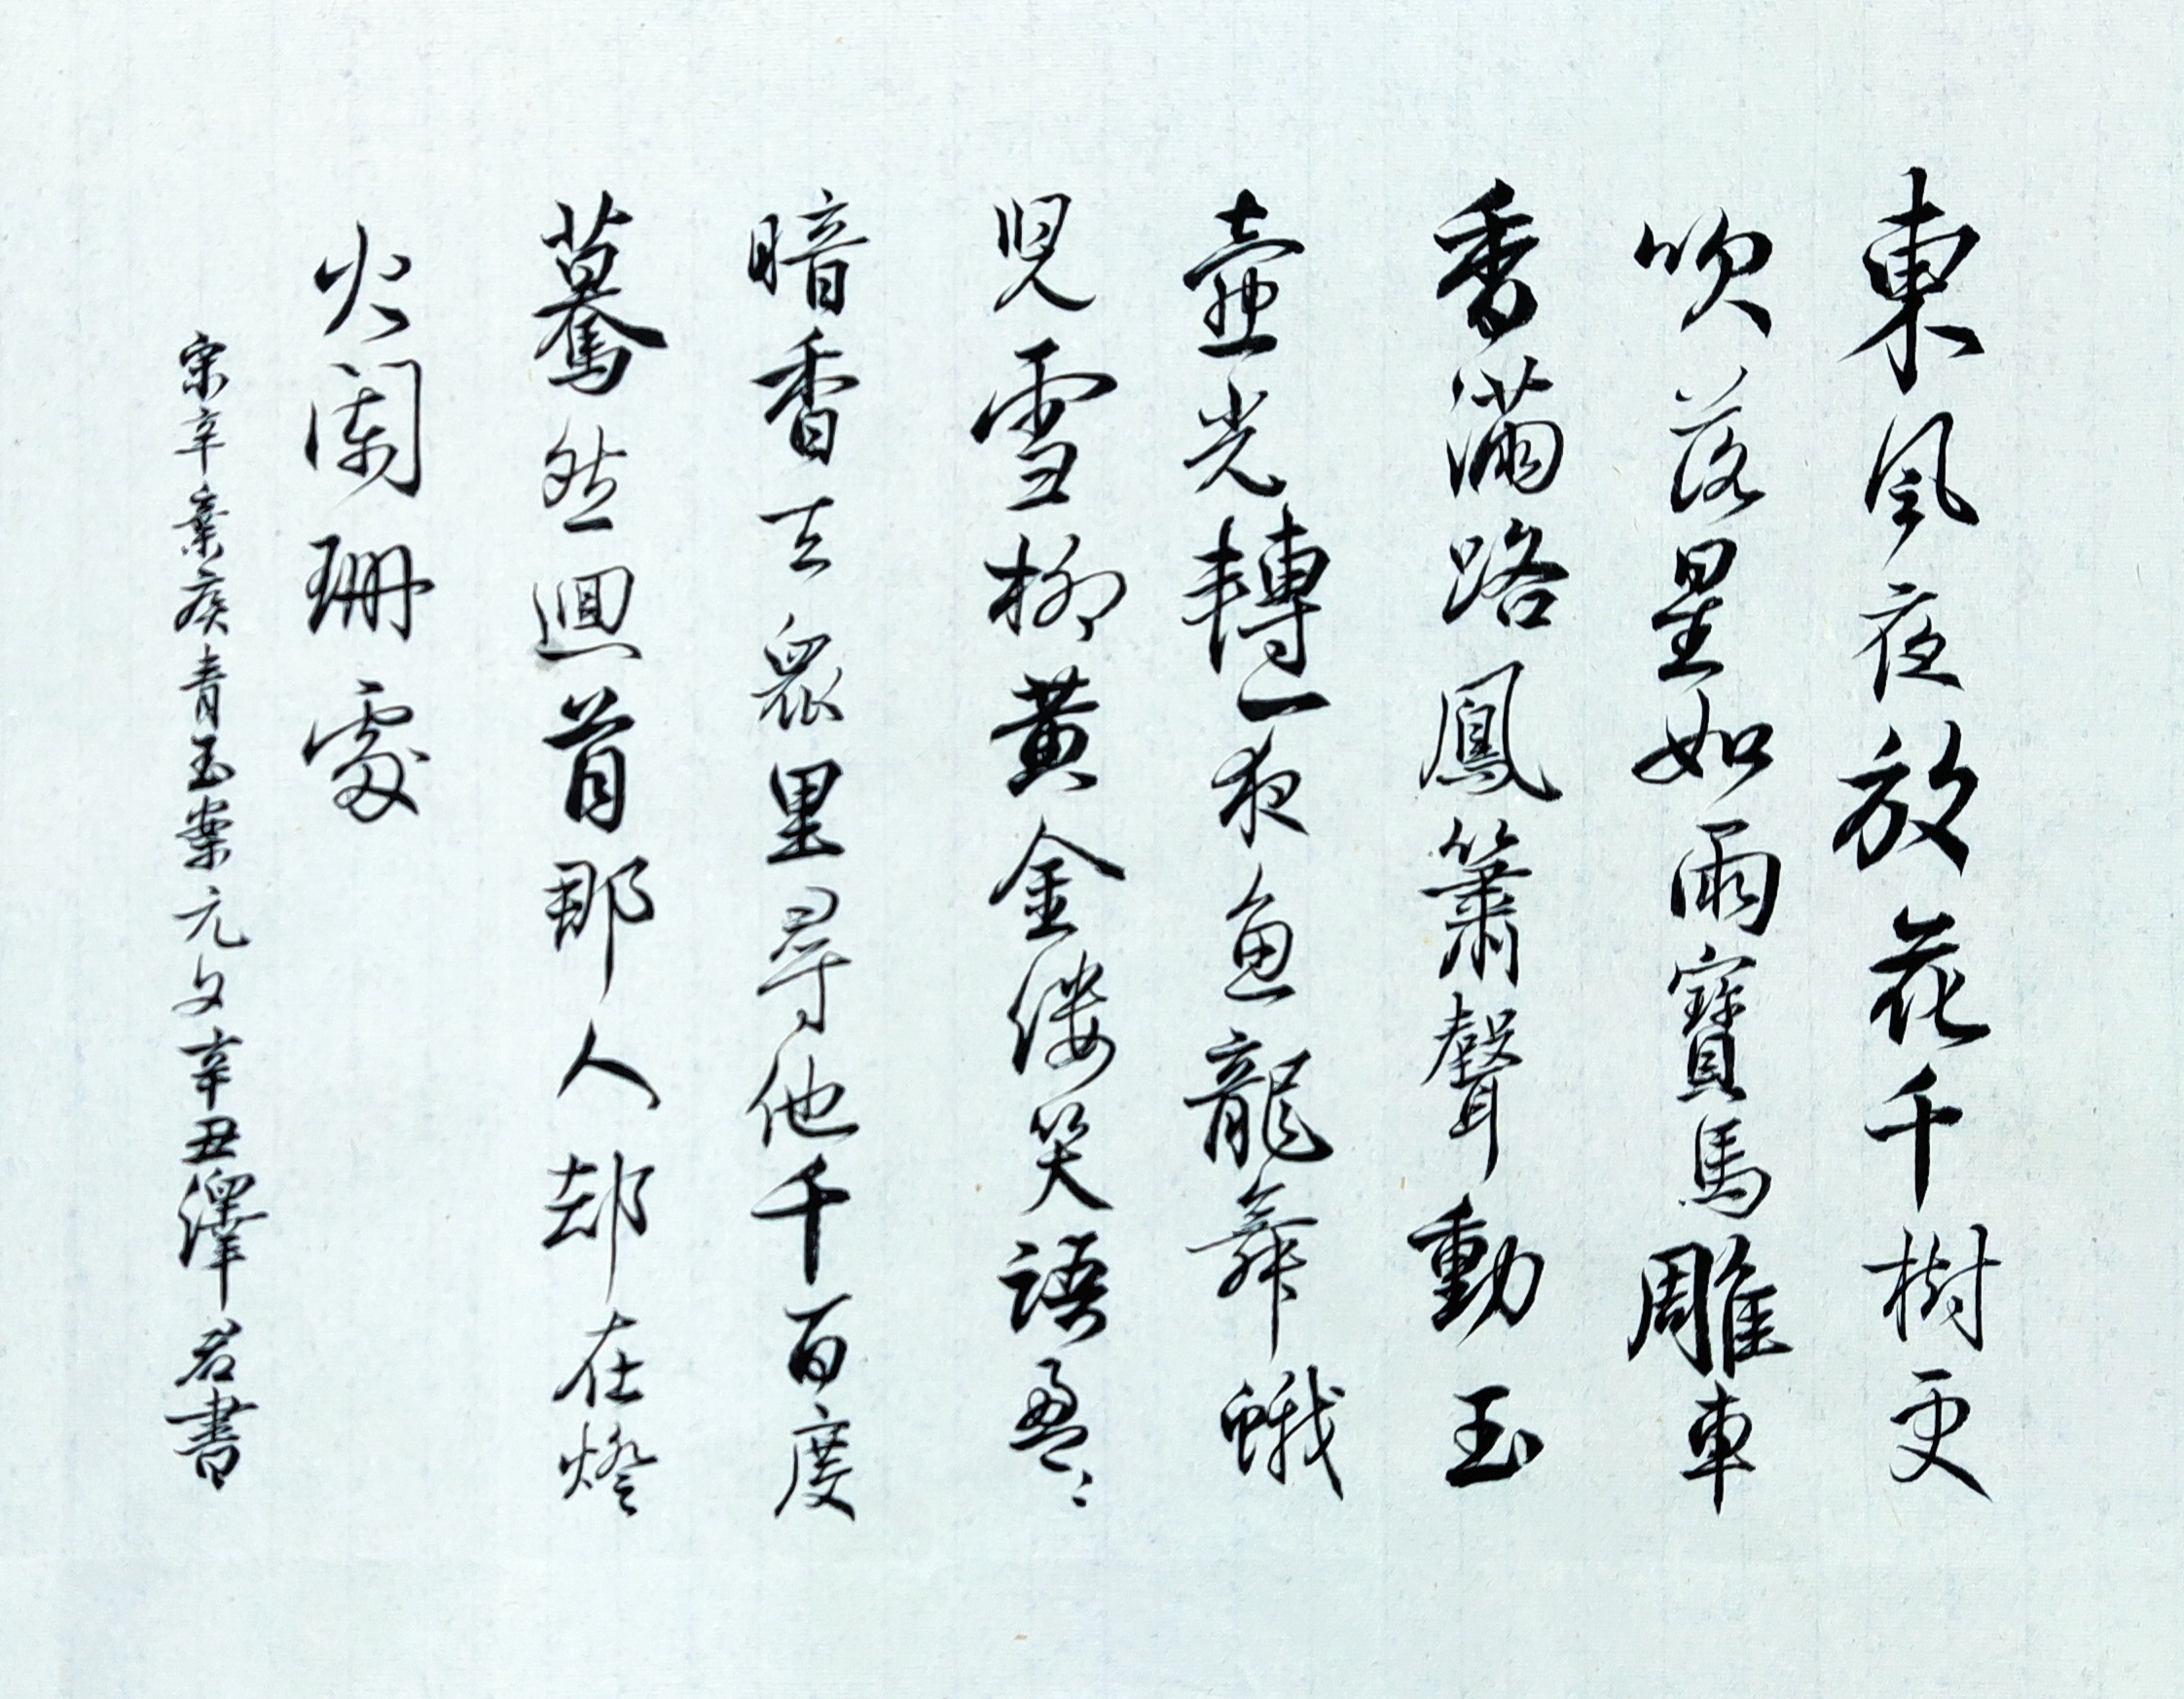 東風夜放花千樹更
吹落星如雨寶馬雕車
香滿路鳳簫聲動玉
壺光轉一夜魚龍舞蛾
兒雪柳黃金縷笑語盈〻
暗香去眾里尋他千百度
驀然迴首那人却在燈
火闌珊處
宋辛棄疾青玉案元夕辛丑澤君書